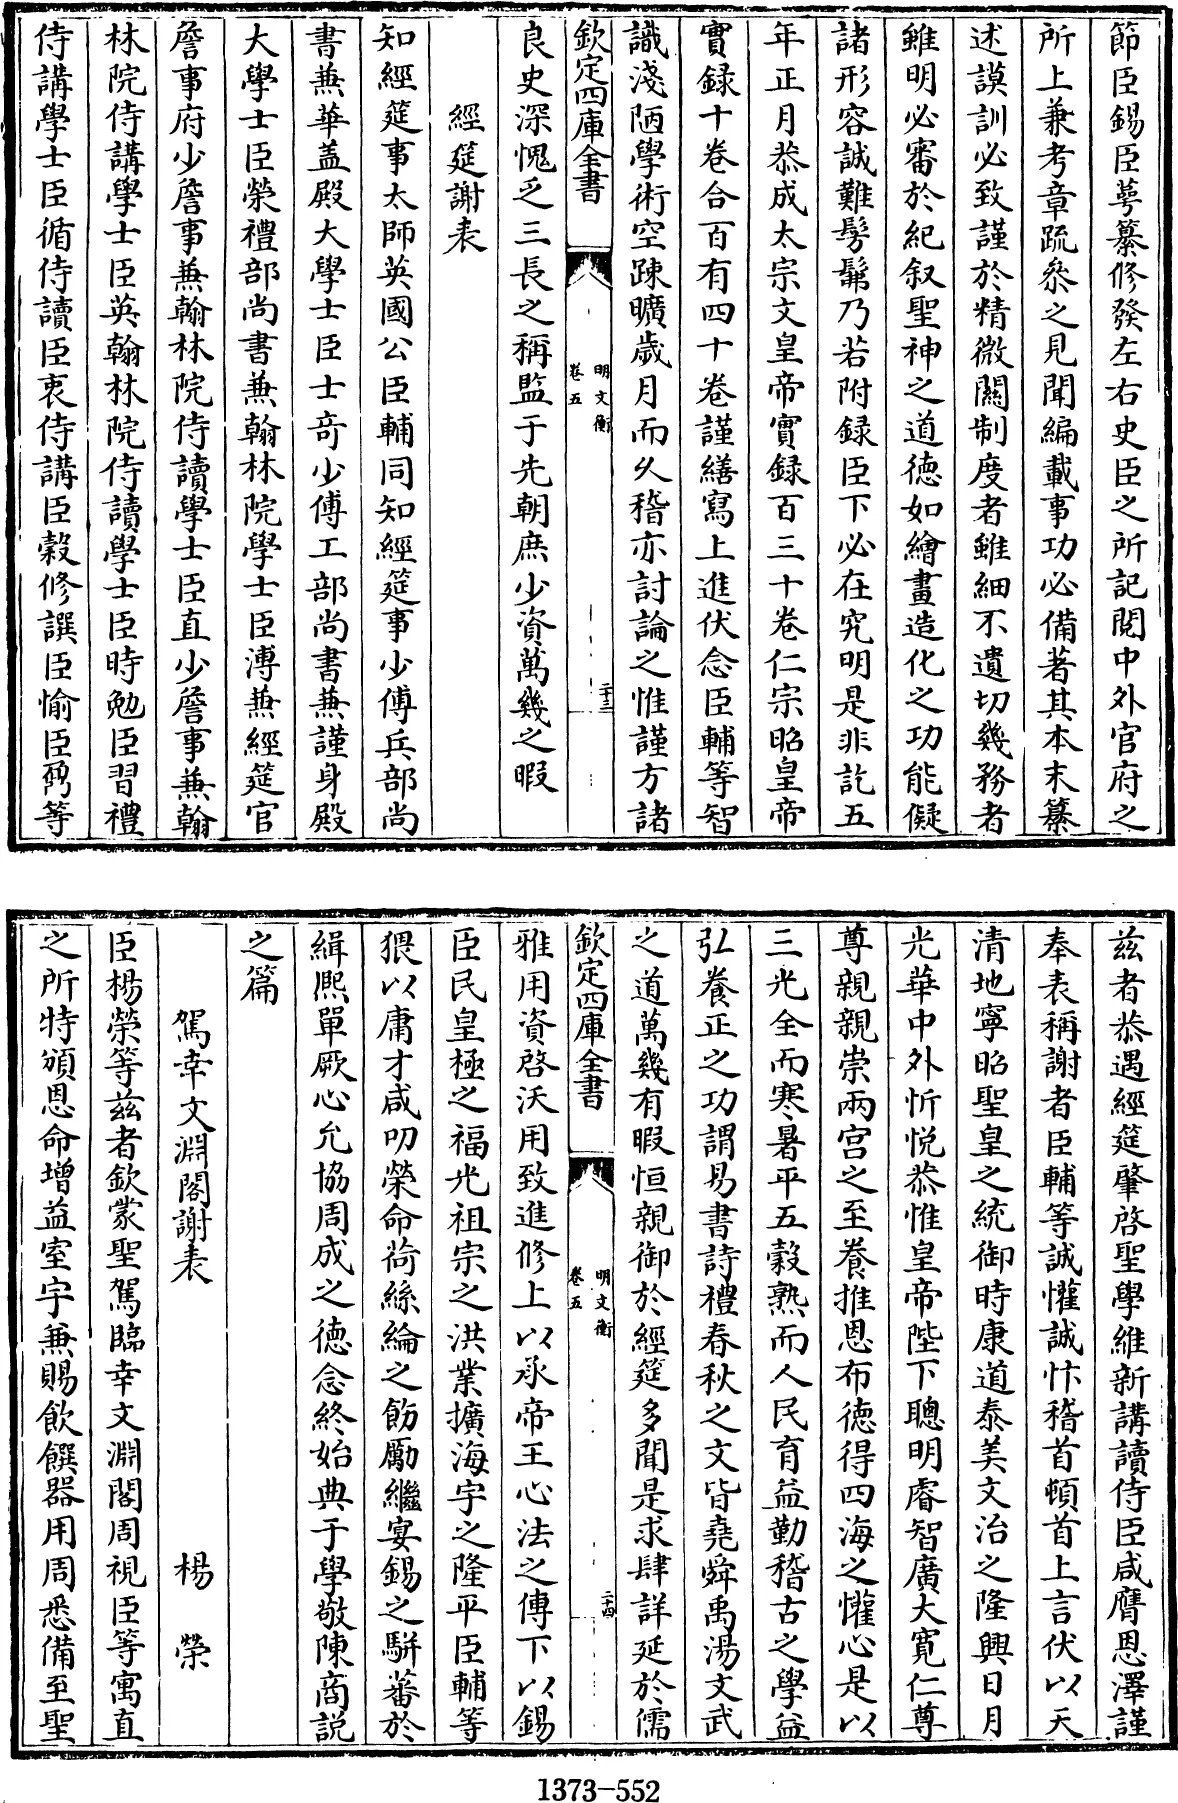 節臣錫臣蕚纂修發左右史臣之所記閱中外官府之
所上兼考章疏叅之見聞編載事功必備著其本末纂
述謨訓必致謹於精微闗制度者雖細不遺切幾務者
雖明必審於紀叙聖神之道徳如繪畫造化之功能儗
諸形容誠難髣髴乃若附録臣下必在究明是非訖五
年正月恭成太宗文皇帝實録百三十卷仁宗昭皇帝
實録十卷合百有四十卷謹繕寫上進伏念臣輔等智
欽定四庫全書
明文衡
卷五
二十三
識淺陋學術空踈曠歲月而乆稽亦討論之惟謹方諸
良史深愧乏三長之稱監于先朝庶少資萬幾之暇
經筵謝表
知經筵事太師英國公臣輔同知經筵事少傅兵部尚
書兼華盖殿大學士臣士奇少傅工部尚書兼謹身殿
大學士臣榮禮部尚書兼翰林院學士臣溥兼經筵官
詹事府少詹事兼翰林院侍讀學士臣直少詹事兼翰
林院侍講學士臣英翰林院侍讀學士臣時勉臣習禮
侍講學士臣循侍讀臣衷侍講臣榖修譔臣愉臣鼐等
兹者恭遇經筵肇啓聖學維新講讀侍臣咸膺恩澤謹
奉表稱謝者臣輔等誠懽誠忭稽首頓首上言伏以天
清地寧昭聖皇之統御時康道泰美文治之隆興日月
光華中外忻悦恭惟皇帝陛下聰明睿智廣大寛仁尊
尊親親崇兩宫之至養推恩布徳得四海之懽心是以
三光全而寒暑平五穀熟而人民育益勤稽古之學益
弘養正之功謂易書詩禮春秋之文皆堯舜禹湯文武
之道萬幾有暇恒親御於經筵多聞是求肆詳延於儒
欽定四庫全書
明文衡
卷五
二十四
雅用資啓沃用致進修上以承帝王心法之傳下以錫
臣民皇極之福光祖宗之洪業擴海宇之隆平臣輔等
猥以庸才咸叨榮命荷絲綸之飭勵繼宴錫之駢蕃於
緝熙單厥心允協周成之徳念終始典于學敬陳商説
之篇
駕幸文淵閣謝表 楊榮
臣楊榮等兹者欽䝉聖駕臨幸文淵閣周視臣等寓直
之所特頒恩命增益室宇兼賜飲饌器用周悉備至聖
1373-552